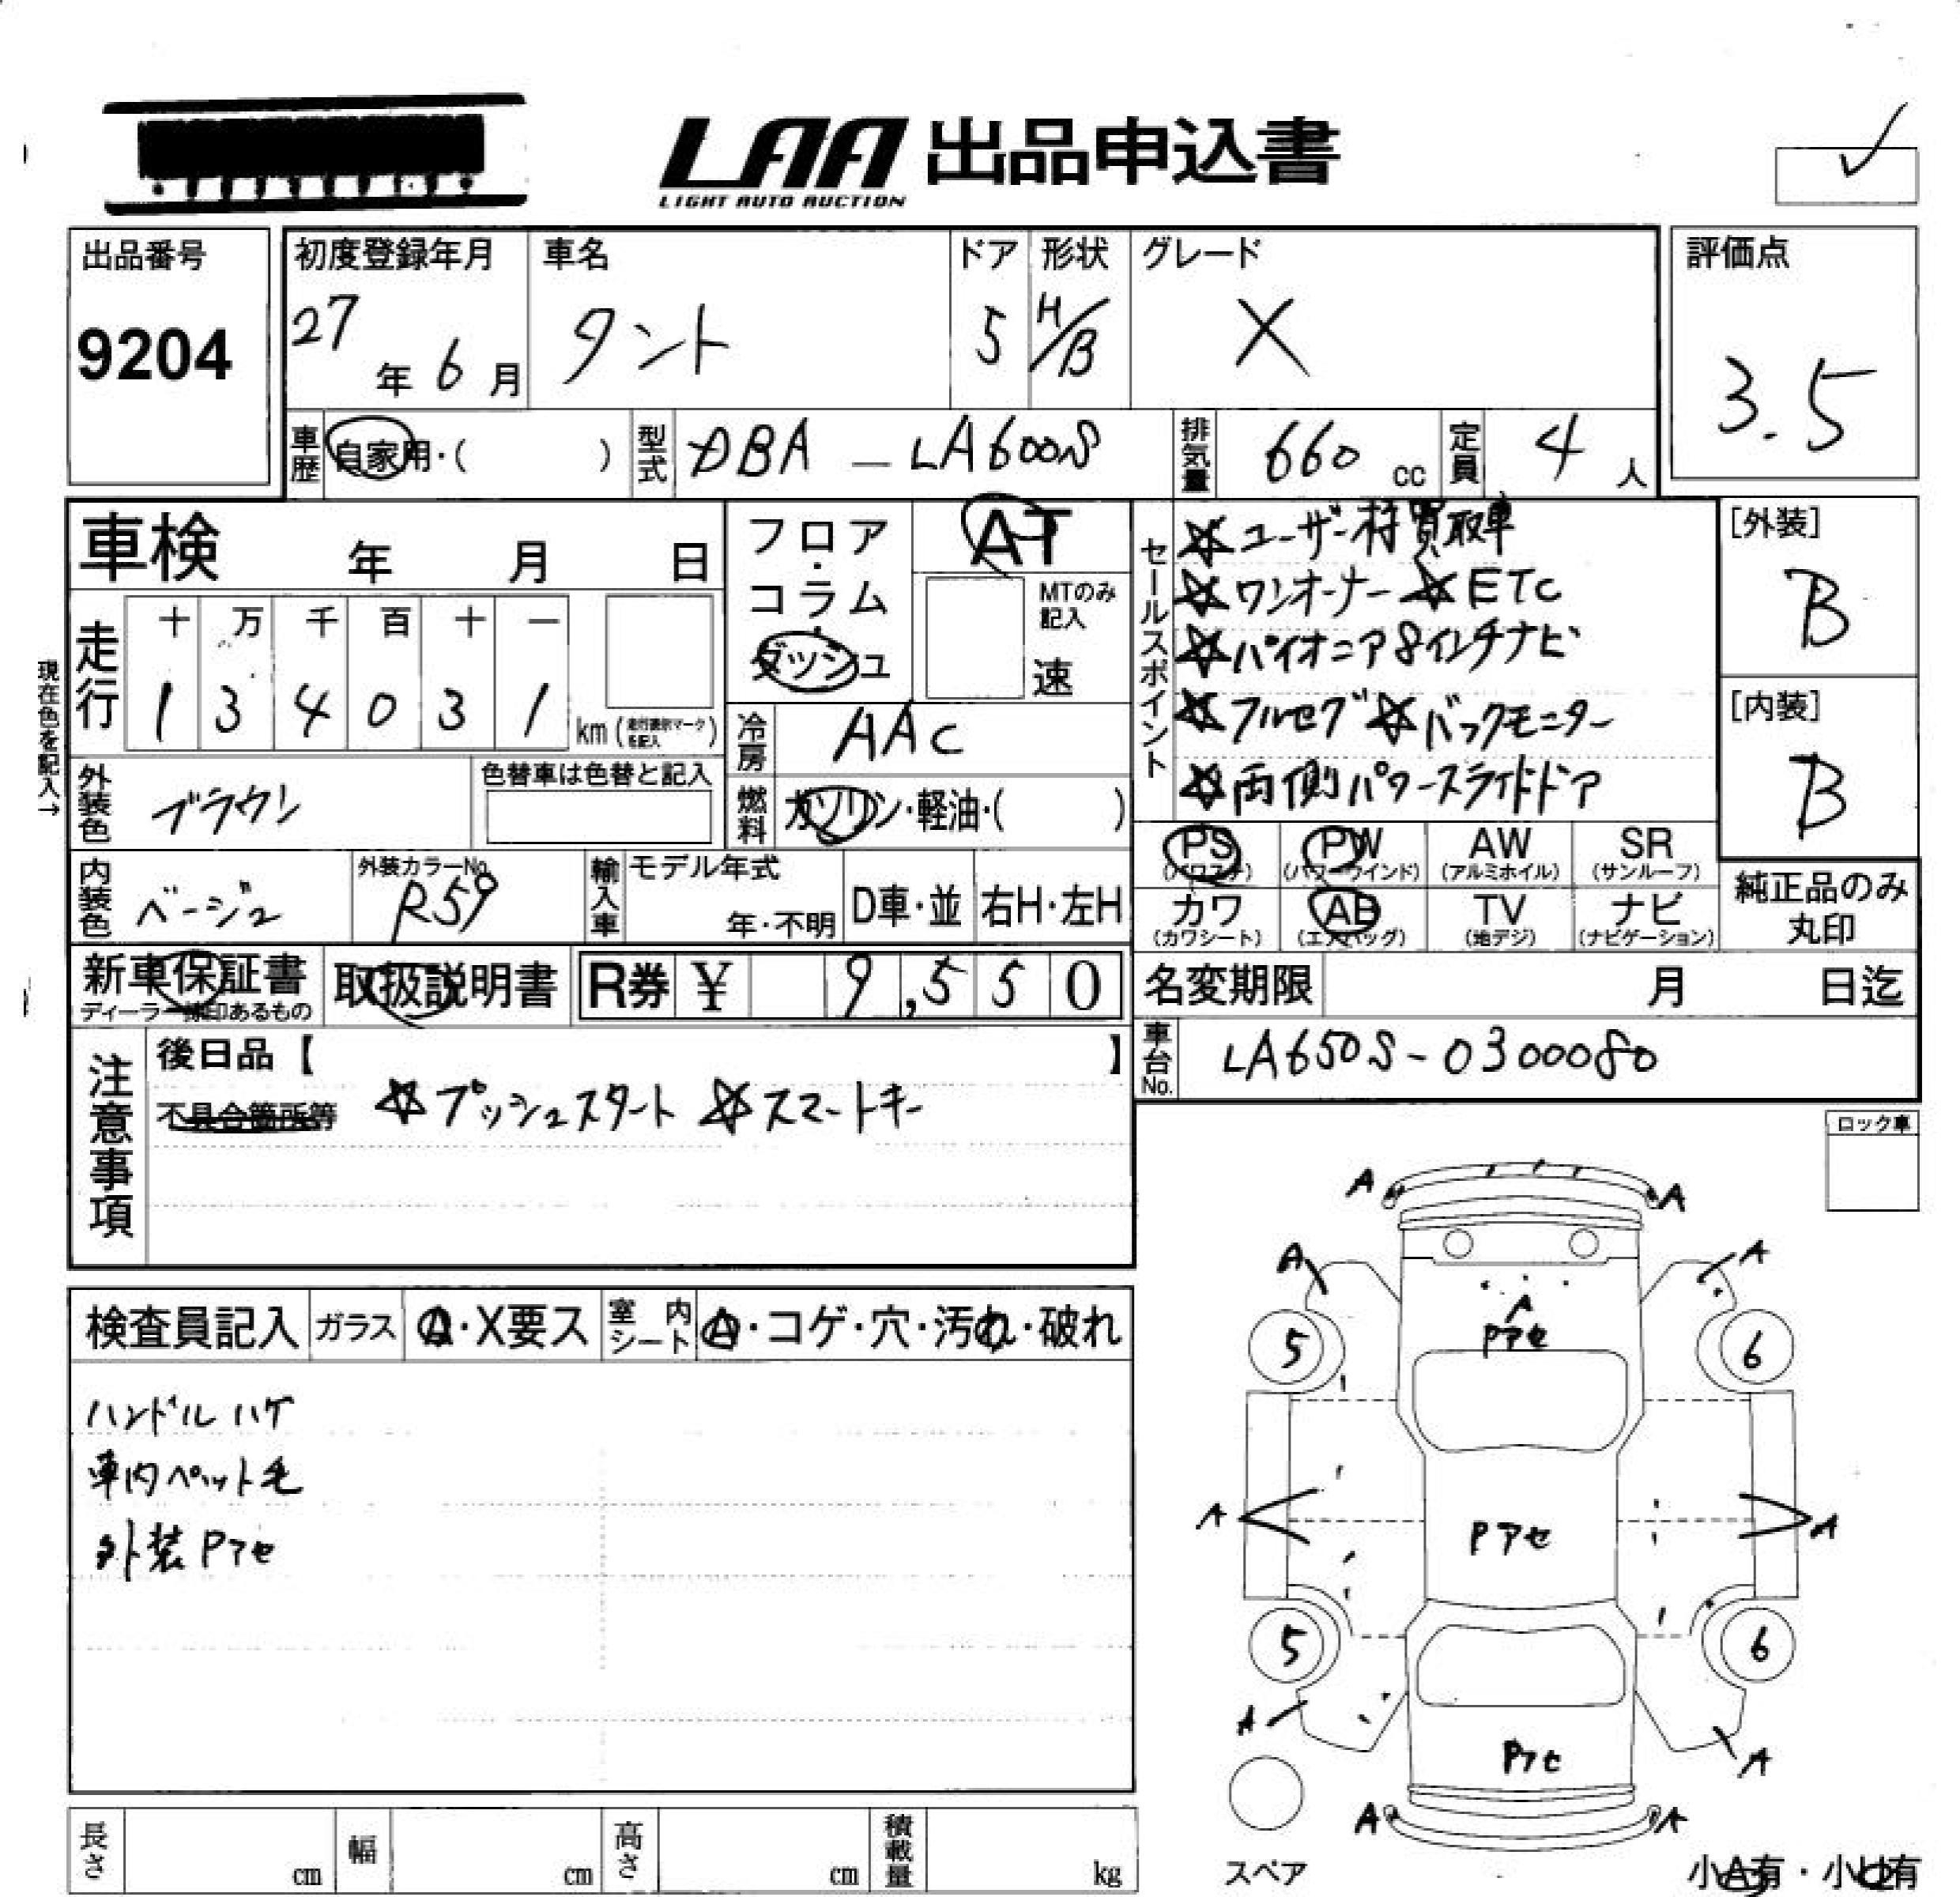 LAA 出品申込書
LIGHT AUTO AUCTION
出品番号
9204
初度登録年月
27年6月
車名
タント
ドア
5
形状
H/B
グレード
X
評価点
3.5
車歴
自家用・( )
型式
DBA - LA600S
排気量
660 cc
定員
4人
車検 年 月 日
現在色を記入→
走行
十 万 千 百 十 一
1 3 4 0 3 1 km
外装色
ブラウン
色替車は色替と記入
内装色
ベージュ
外装カラーNo.
R59
輸入車
モデル年式
年・不明
D車・並
右H・左H
フロア・コラム・ダッシュ
AT
MTのみ記入
速
冷房
AAC
燃料
ガソリン・軽油・( )
セールスポイント
☆ユーザー様買取車
☆ワンオーナー ☆ETC
☆パイオニア8インチナビ
☆フルセグ ☆バックモニター
☆両側パワースライドドア
[外装]
B
[内装]
B
PS (パワステ)
PW (パワーウインド)
AW (アルミホイル)
SR (サンルーフ)
カワ (カワシート)
AB (エアバッグ)
TV (地デジ)
ナビ (ナビゲーション)
純正品のみ丸印
新車保証書
ディーラー捺印あるもの
取扱説明書
R券 ¥ 9,550
名変期限 月 日迄
車台No.
LA650S-0300080
注意事項
後日品【 】
不具合箇所等
☆プッシュスタート ☆スマートキー
ロック車
検査員記入
ガラス
A・X要ス
室内シート
A・コゲ・穴・汚れ・破れ
ハンドルハゲ
車内ペット毛
外装Pアセ
A A
A A
A
Pアセ
5 6
A Pアセ A
5 6
A Pアセ A
A A
スペア
小A有・小U有
長さ cm
幅 cm
高さ cm
積載量 kg